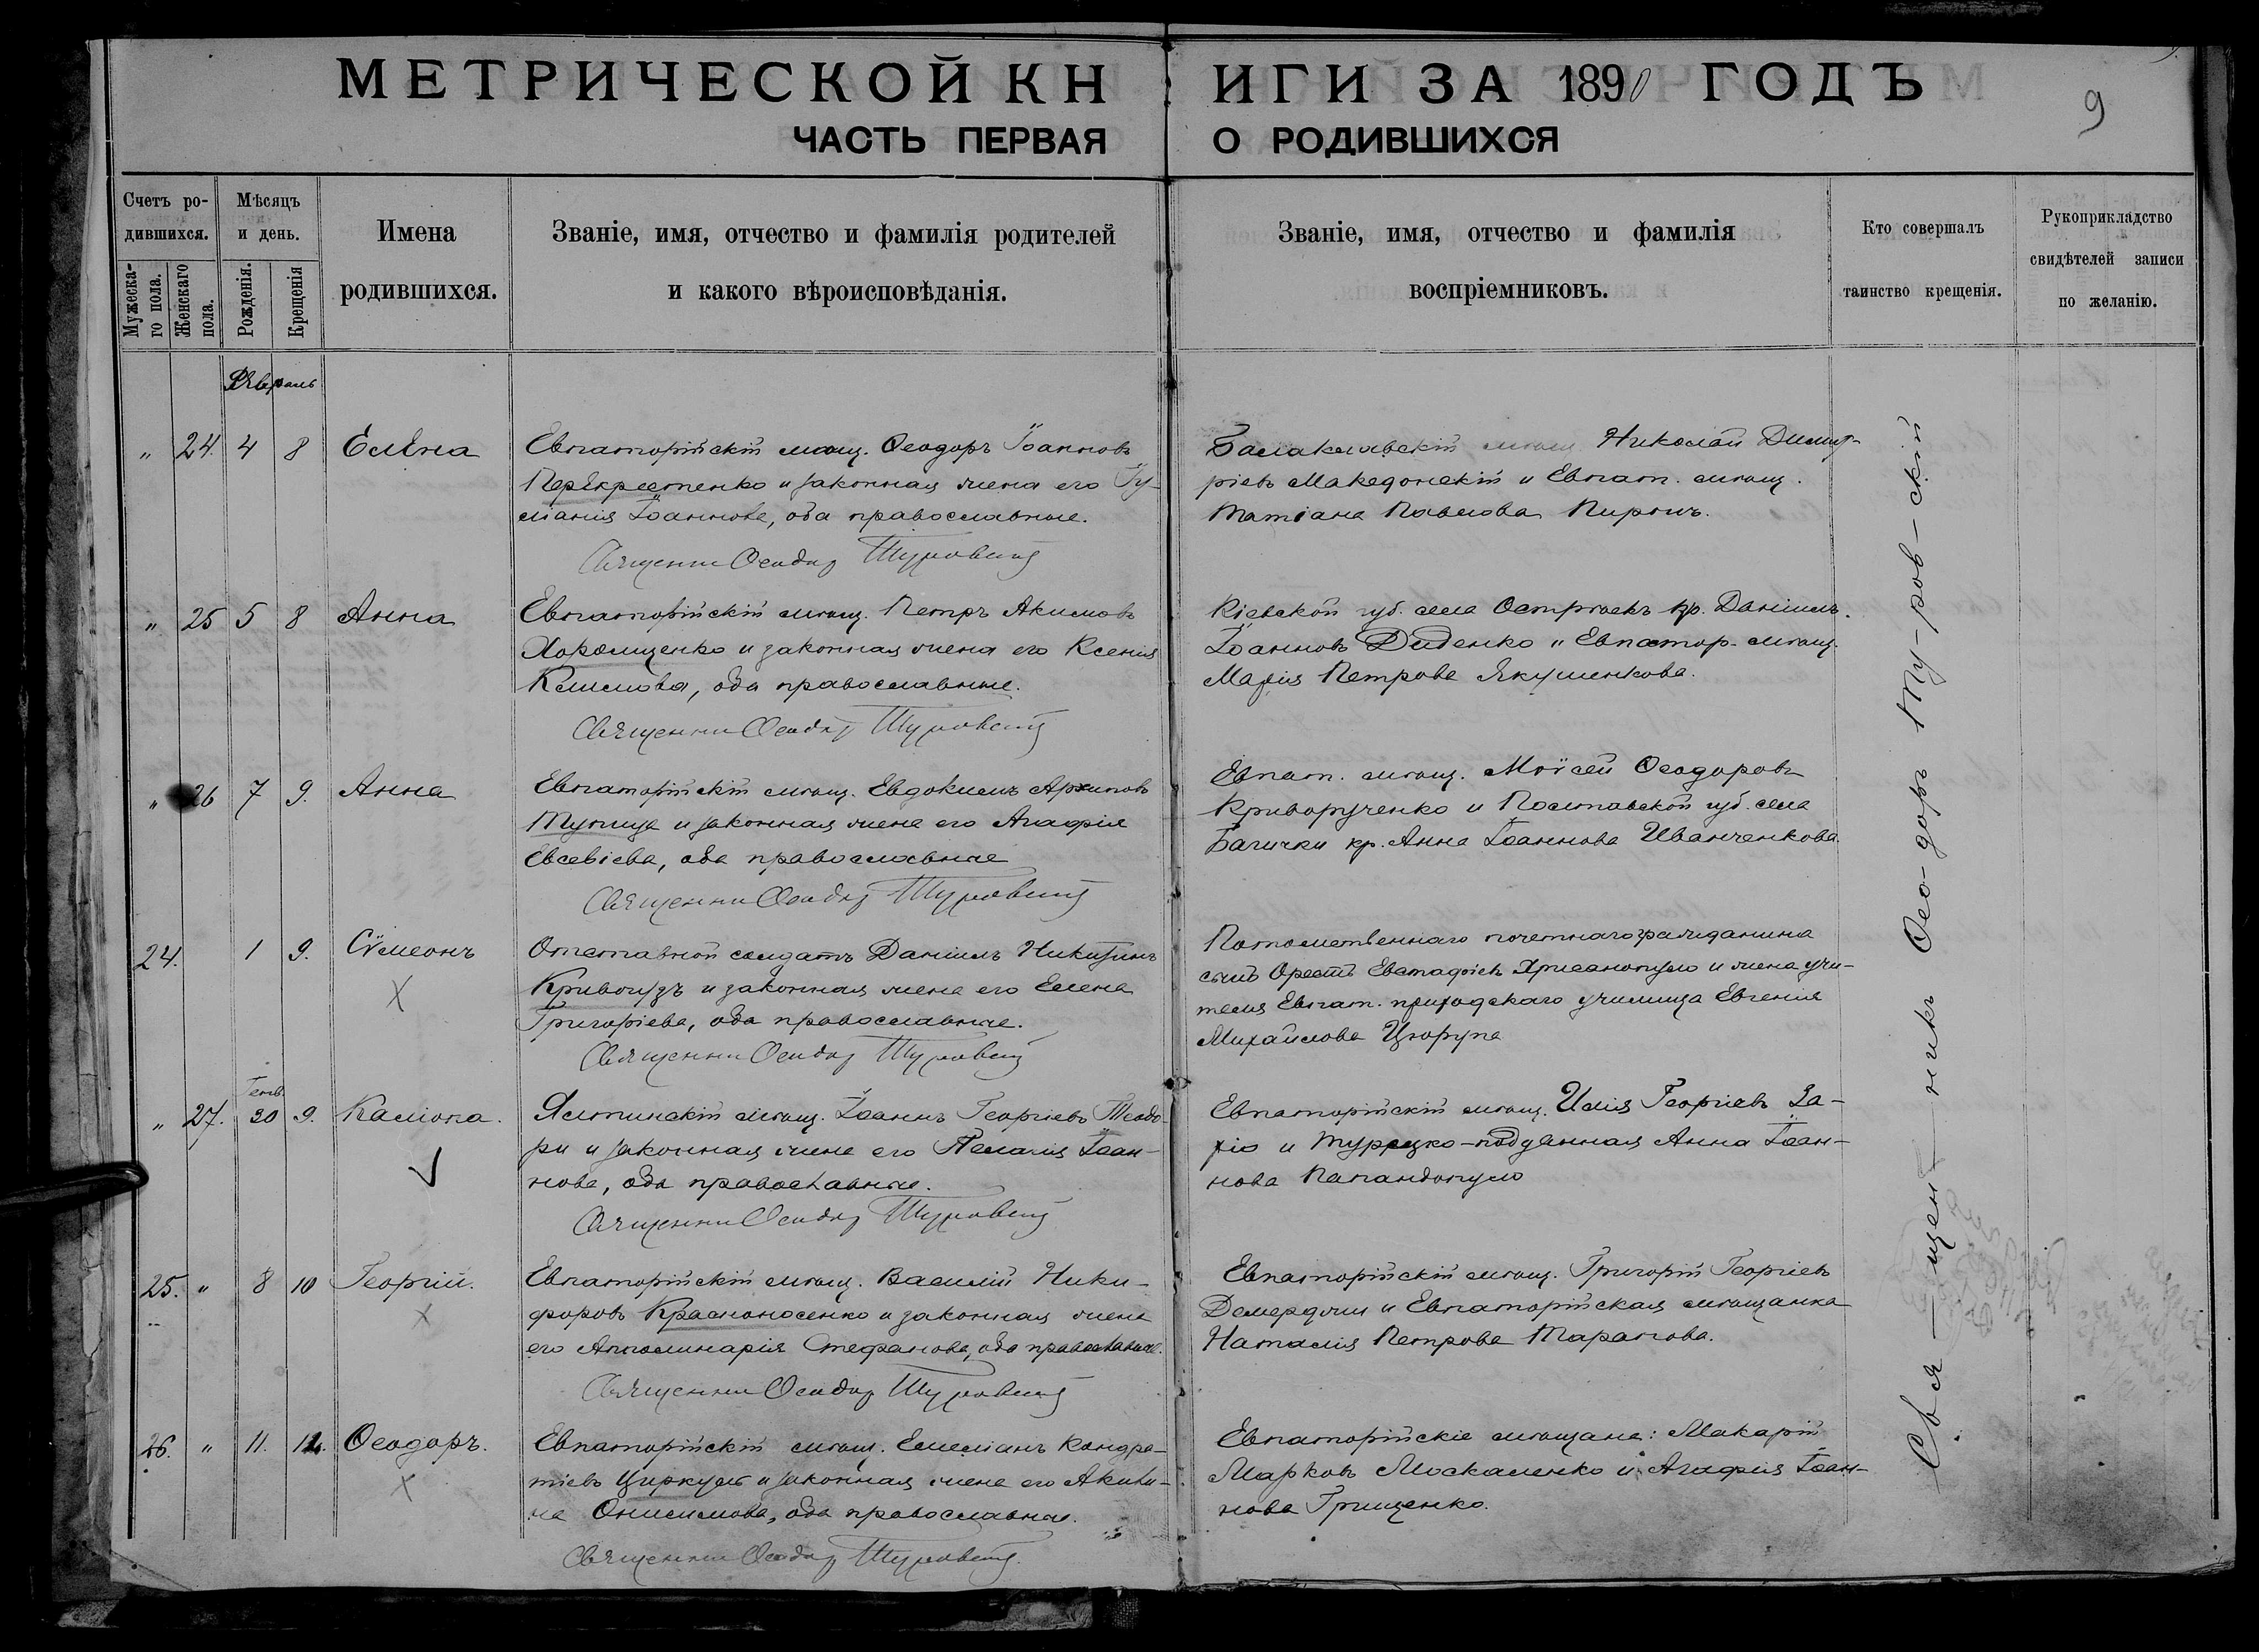 МЕТРИЧЕСКОЙ КНИГИ ЗА 1890 ГОДЪ
9
ЧАСТЬ ПЕРВАЯ О РОДИВШИХСЯ
Счетъ ро-
дившихся.
Мужеска-
го пола.
Женскаго
пола.
Мѣсяцъ
и день.
Рожденія.
Крещенія
Имена
родившихся.
Званіе, имя, отчество и фамилія родителей
и какого вѣроисповѣданія.
Званіе, имя, отчество и фамилія
воспріемниковъ.
Кто совершалъ
таинство крещенія.
Рукоприкладство
свидѣтелей записи
по желанію.
Февраль
" 24. 4 8 Елена
Евпаторійскій мѣщ. Ѳеодоръ Іоанновъ
Перекрестенко и законная жена его Іу-
ліанія Іоаннова, оба православные.
Священник Ѳеодор Туровскій
Балаклавскій мѣщ. Николай Димит-
ріевъ Македонскій и Евпат. мѣщ.
Татіана Павлова Пирогъ.
" 25 5 8 Анна
Евпаторійскій мѣщ. Петръ Акимовъ
Хоромщенко и законная жена его Ксенія
Климова, оба православные.
Священник Ѳеодор Туровскій
Кіевской губ. села кр. Даніилъ
Іоанновъ Диденко и Евпатор. мѣщ.
Марія Петрова Якушенкова.
" 26 7 9. Анна
Евпаторійскій мѣщ. Евдокимъ Архиповъ
Тупица и законная жена его Агафія
Евсевіева, оба православные
Священник Ѳеодор Туровскій
Евпат. мѣщ. Моѵсей Ѳеодоровъ
Криворученко и Полтавской губ. села
Багачки кр. Анна Іоаннова Иванченкова.
24. 1 9. Сѵмеонъ
Отставной солдатъ Даніилъ Никитинъ
и законная жена его Елена
Григоріева, оба православные.
Священник Ѳеодор Туровскій
Потомственнаго почетнаго гражданина
сынъ Орестъ Евстафіевъ Хрисанопуло и жена учи-
теля Евпат. приходскаго училища Евгенія
Михайлова Цюрупа
Генв.
" 27. 30 9. Каліопа.
Ялтинскій мѣщ. Іоаннъ Георгіевъ Теодо-
ри и законная жена его Пелагія Іоан-
нова, оба православные.
Священник Ѳеодор Туровскій
Евпаторійскій мѣщ. Илія Георгіевъ За-
ріо и турецко-подданная Анна Іоан-
нова Папандопуло
25. " 8 10 Георгій.
Евпаторійскій мѣщ. Василій Ники-
форовъ Красноносенко и законная жена
его Апполинарія Стефанова, оба православные.
Священник Ѳеодор Туровскій
Евпаторійскій мѣщ. Григорій Георгіевъ
Демерджи и Евпаторійская мѣщанка
Наталія Петрова Таранова.
26. " 11. 12. Ѳеодоръ.
Евпаторійскій мѣщ. Емеліанъ Кондра-
тіевъ Циркуль и законная жена его Акили-
на Онисимова, оба православные.
Священник Ѳеодор Туровскій.
Евпаторійскіе мѣщане: Макарій
Марковъ Москаленко и Агафія Іоан-
нова Грищенко.
Свя-щен-никъ Ѳео-доръ Ту-ров-скій